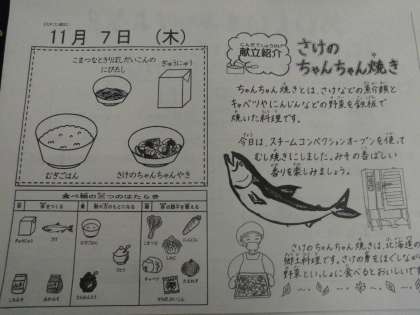 11月 7日 (木)
こまつなときりぼしだいこんの
にびたし
ぎゅうにゅう
むぎごはん
さけのちゃんちゃんやき
食べ物の3つのはたらき
献立紹介
さけの
ちゃんちゃん焼き
ちゃんちゃん焼きとは、さけなどの魚介類と
キャベツやにんじんなどの野菜を鉄板で
焼いた料理です。
今日は、スチームコンベクションオーブンを使って、
むし焼きにしました。みその香ばしい
香りを楽しみましょう。
さけのちゃんちゃん焼きは、北海道の
郷土料理です。さけの身をほぐしながら
野菜といっしょに食べるとおいしいです。